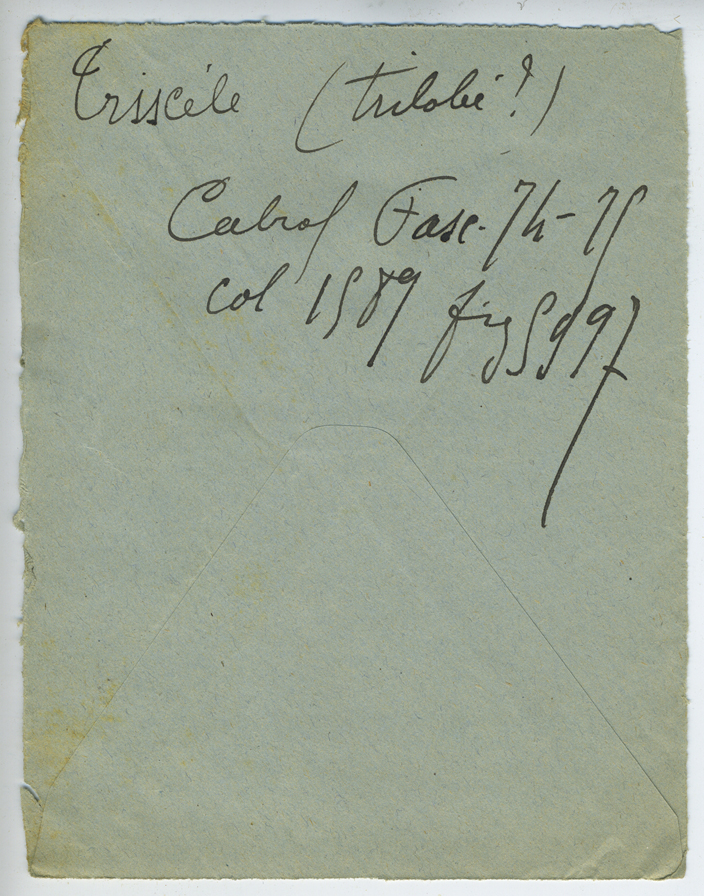 Trisscéle (trilobé?)
Cabrol Fasc. 74-75
col 1589 fig 5997